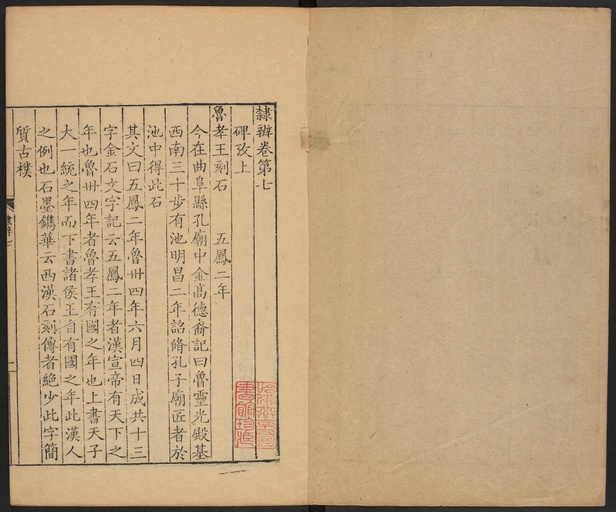 隸辨卷第七
碑攷上
魯孝王刻石 五鳳二年
今在曲阜縣孔廟中金高德裔記曰魯靈光殿基
西南三十步有池明昌二年詔脩孔子廟匠者於
池中得此石
其文曰五鳳二年魯卅四年六月四日成共十三
字金石文字記云五鳳二年者漢宣帝有天下之
年也魯卅四年者魯孝王有國之年也上書天子
大一統之年而下書諸侯王自有國之年此漢人
之例也石墨鐫華云西漢石刻傳者絕少此字簡
質古樸